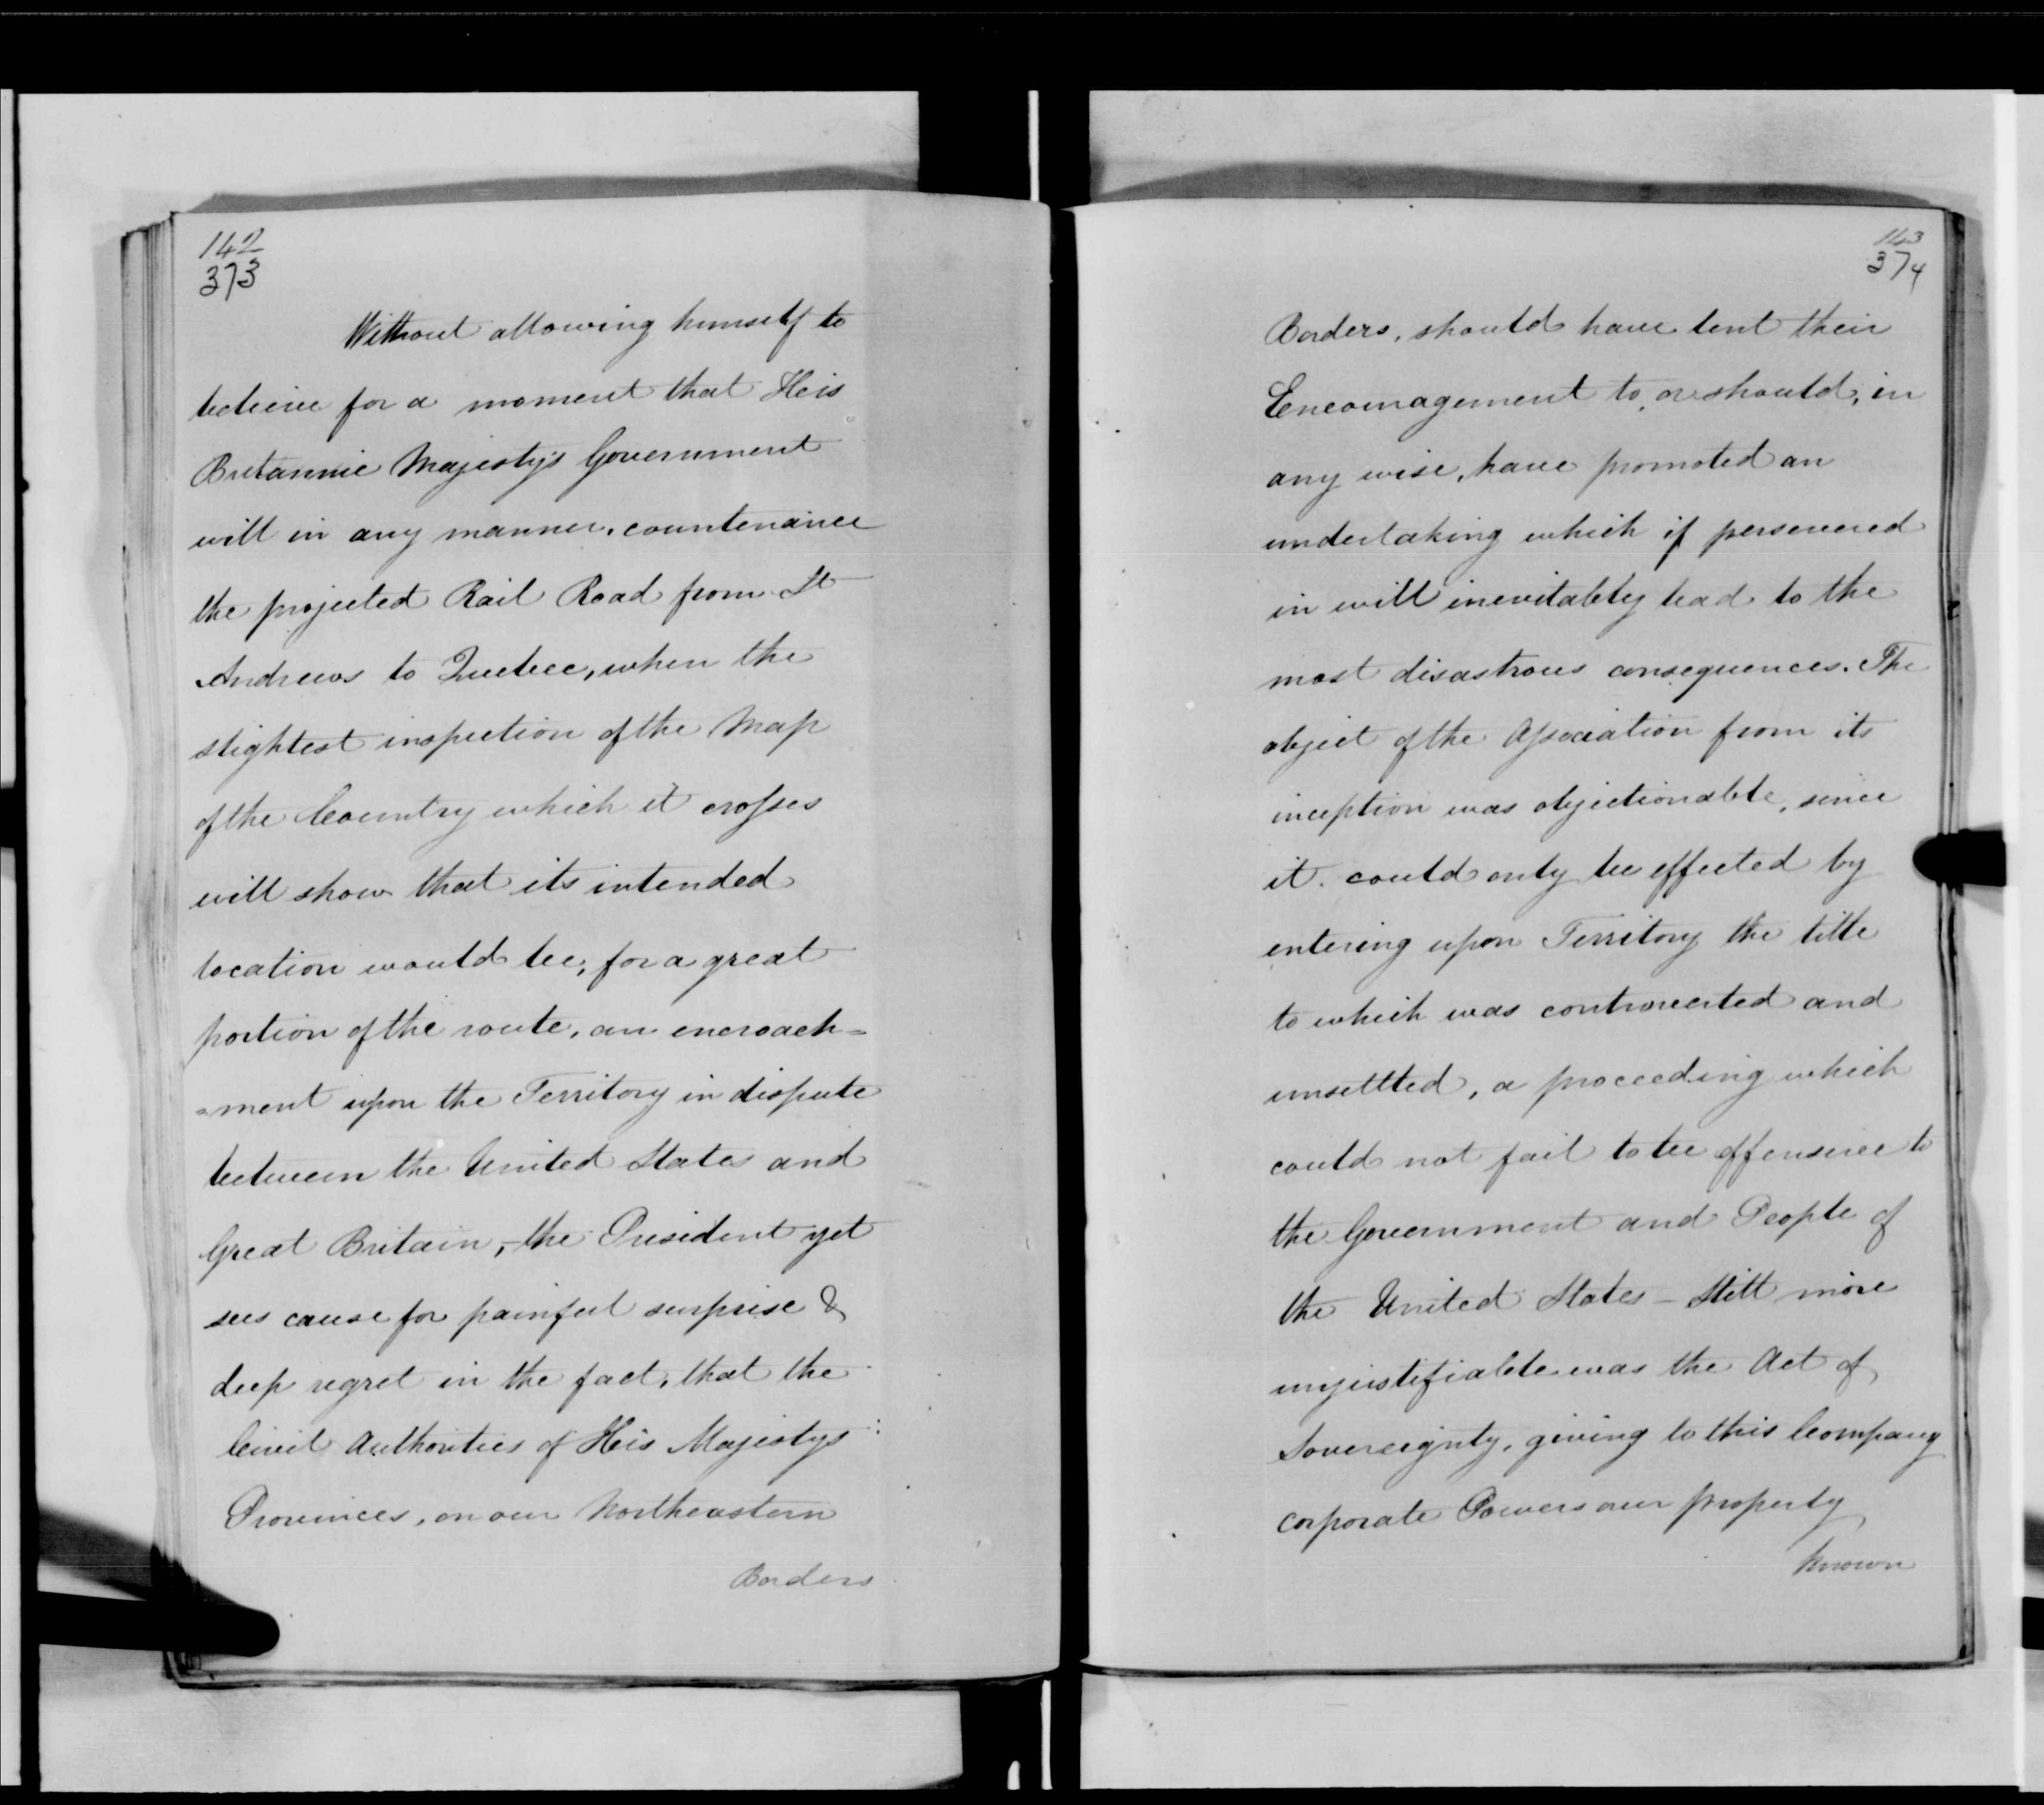 142
373
Without allowing himself to
believe for a moment that His
Britannic Majesty's Government
will in any manner, countenance
the projected Rail Road from St
Andrews to Quebec, when the
slightest inspection of the Map
of the Country which it crosses
will show that its intended
location would be, for a great
portion of the route, an encroach=
=ment upon the Territory in dispute
between the United States and
Great Britain, - the President yet
sees cause for painful surprise &
deep regret in the fact, that the
Civil Authorities of His Majestys
Provinces, on our Northeastern
Borders
143
374
Borders, should have lent their
Encouragement to, or should, in
any wise, have promoted an
undertaking which if persevered
in will inevitably lead to the
most disastrous consequences. The
object of the Association from its
inception was objectionable, since
it could only be effected by
entering upon Territory the title
to which was controverted and
unsettled, a proceeding which
could not fail to be offensive to
the Government and People of
the United States - Still more
unjustifiable was the Act of
Sovereignty, giving to this Company
corporate Powers over property
known